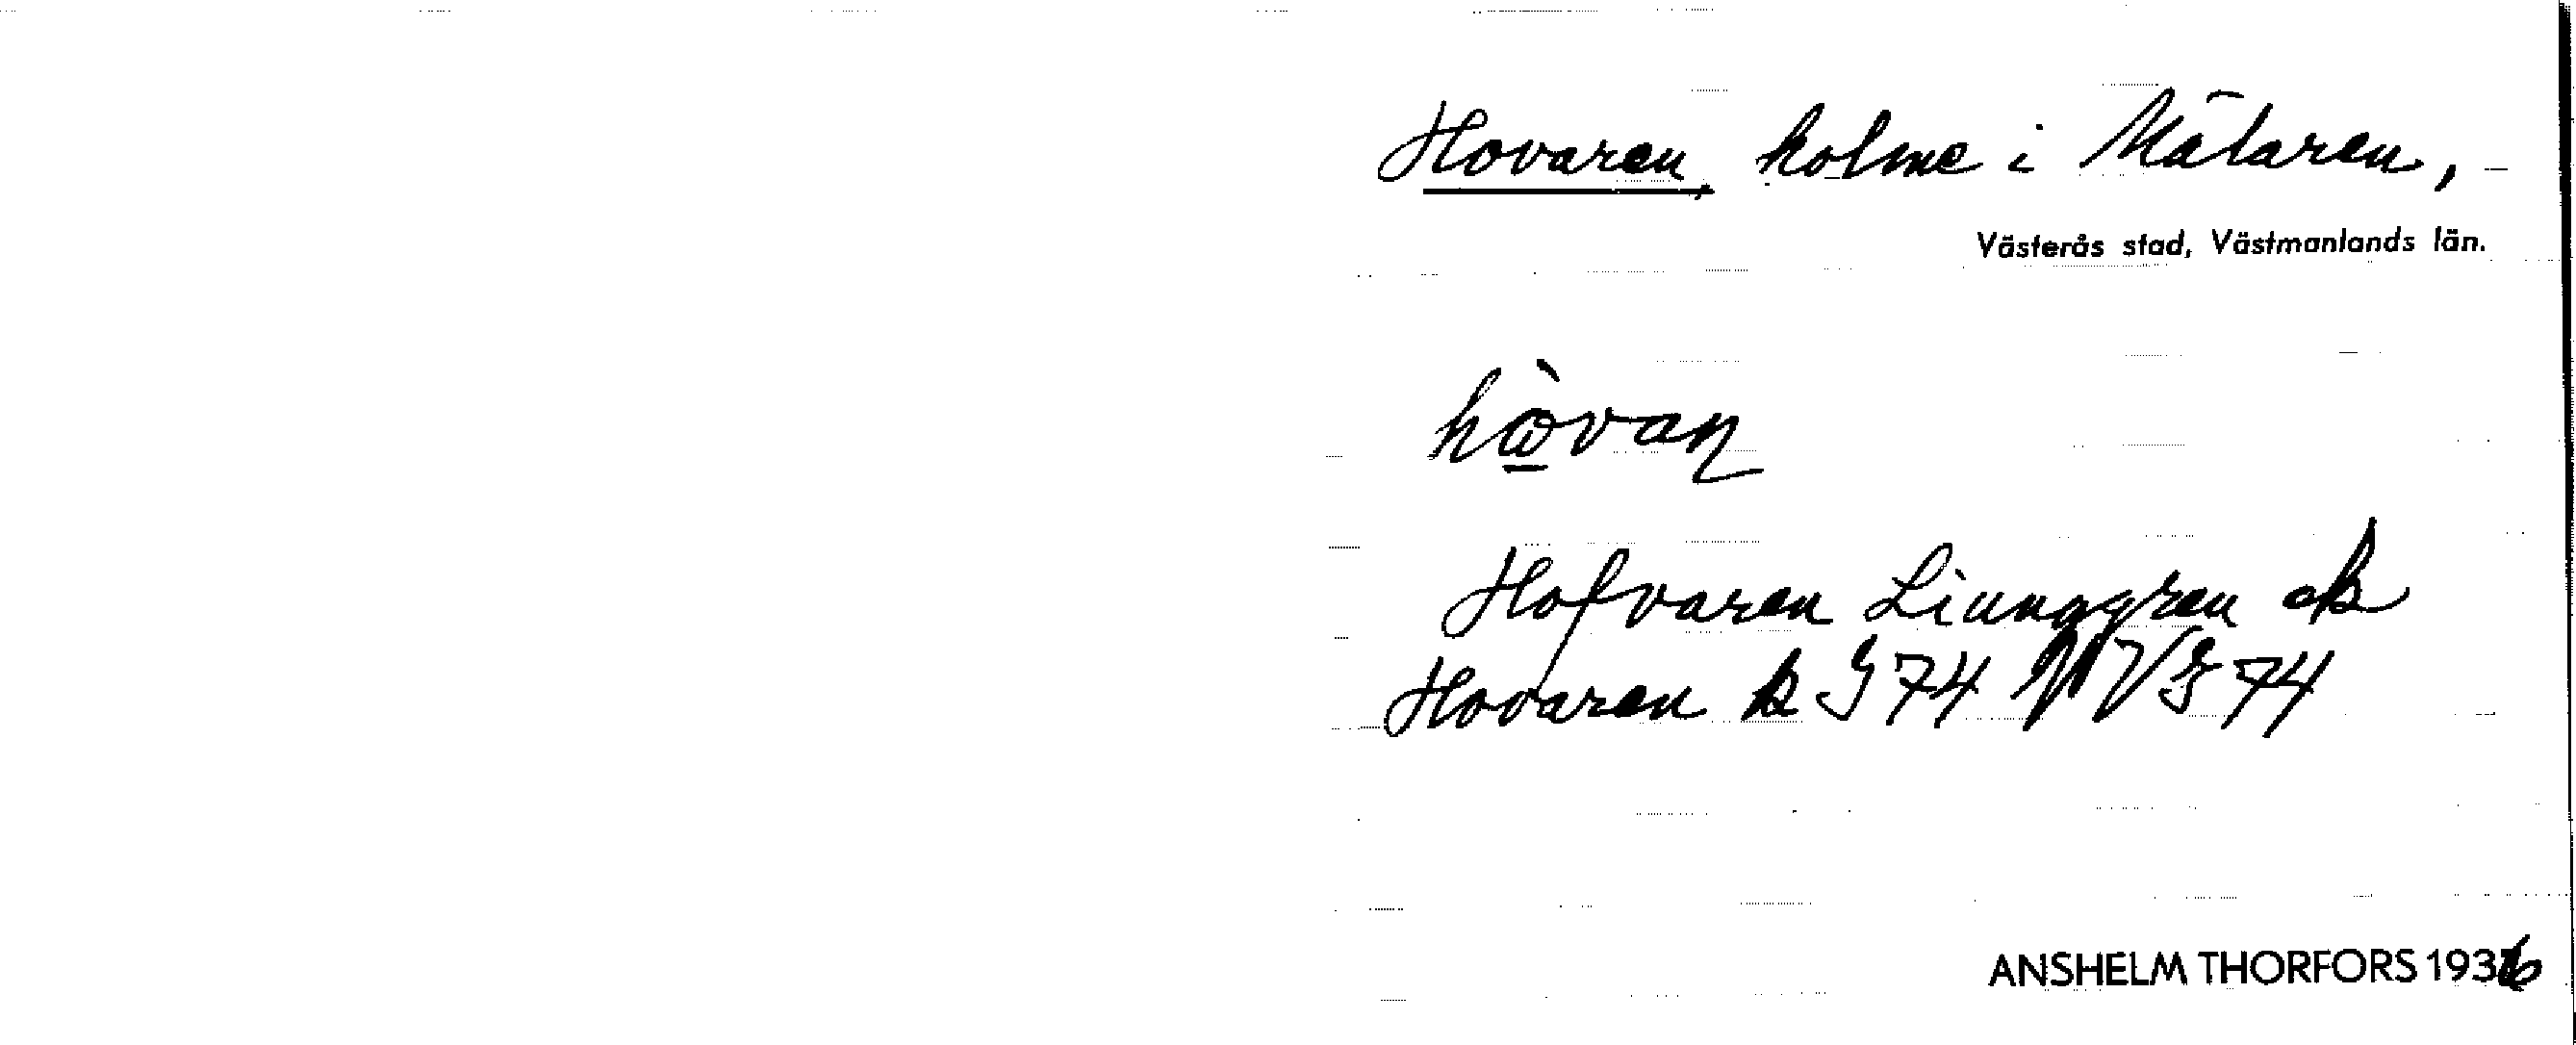 Hovaren, holme i Mälaren,
Västerås stad, Västmanlands län.
hɷ̀van
Hofvaren Liunggren ek
Hovaren k G 74 NVG 74
ANSHELM THORFORS 1936